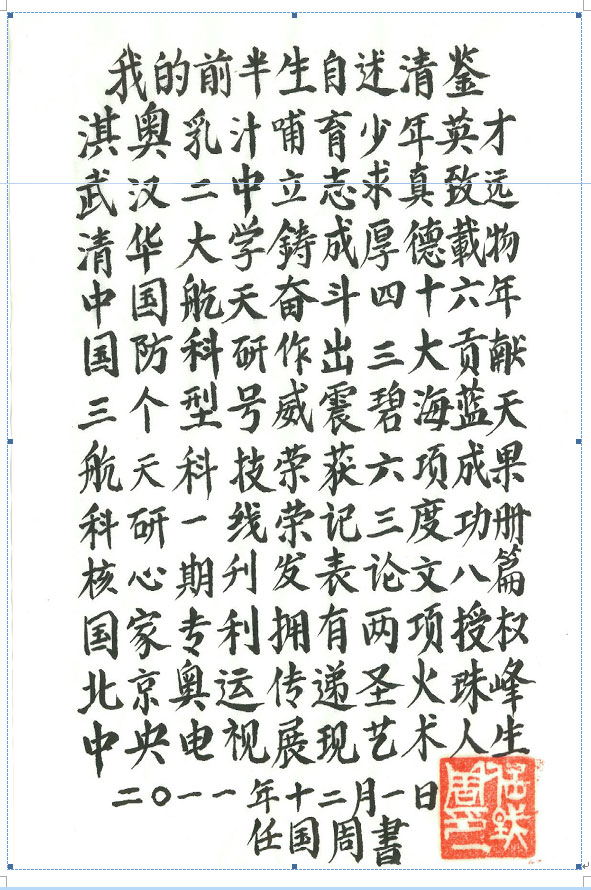 我的前半生自述清鉴
淇奥乳汁哺育少年英才
武汉二中立志求真致远
清华大学铸成厚德载物
中国航天奋斗四十六年
国防科研作出三大贡献
三个型号威震碧海蓝天
航天科技荣获六项成果
科研一线荣记三度功册
核心期刊发表论文八篇
国家专利拥有两项授权
北京奥运传递圣火珠峰
中央电视展现艺术人生
二〇一一年十二月一日
任国周書